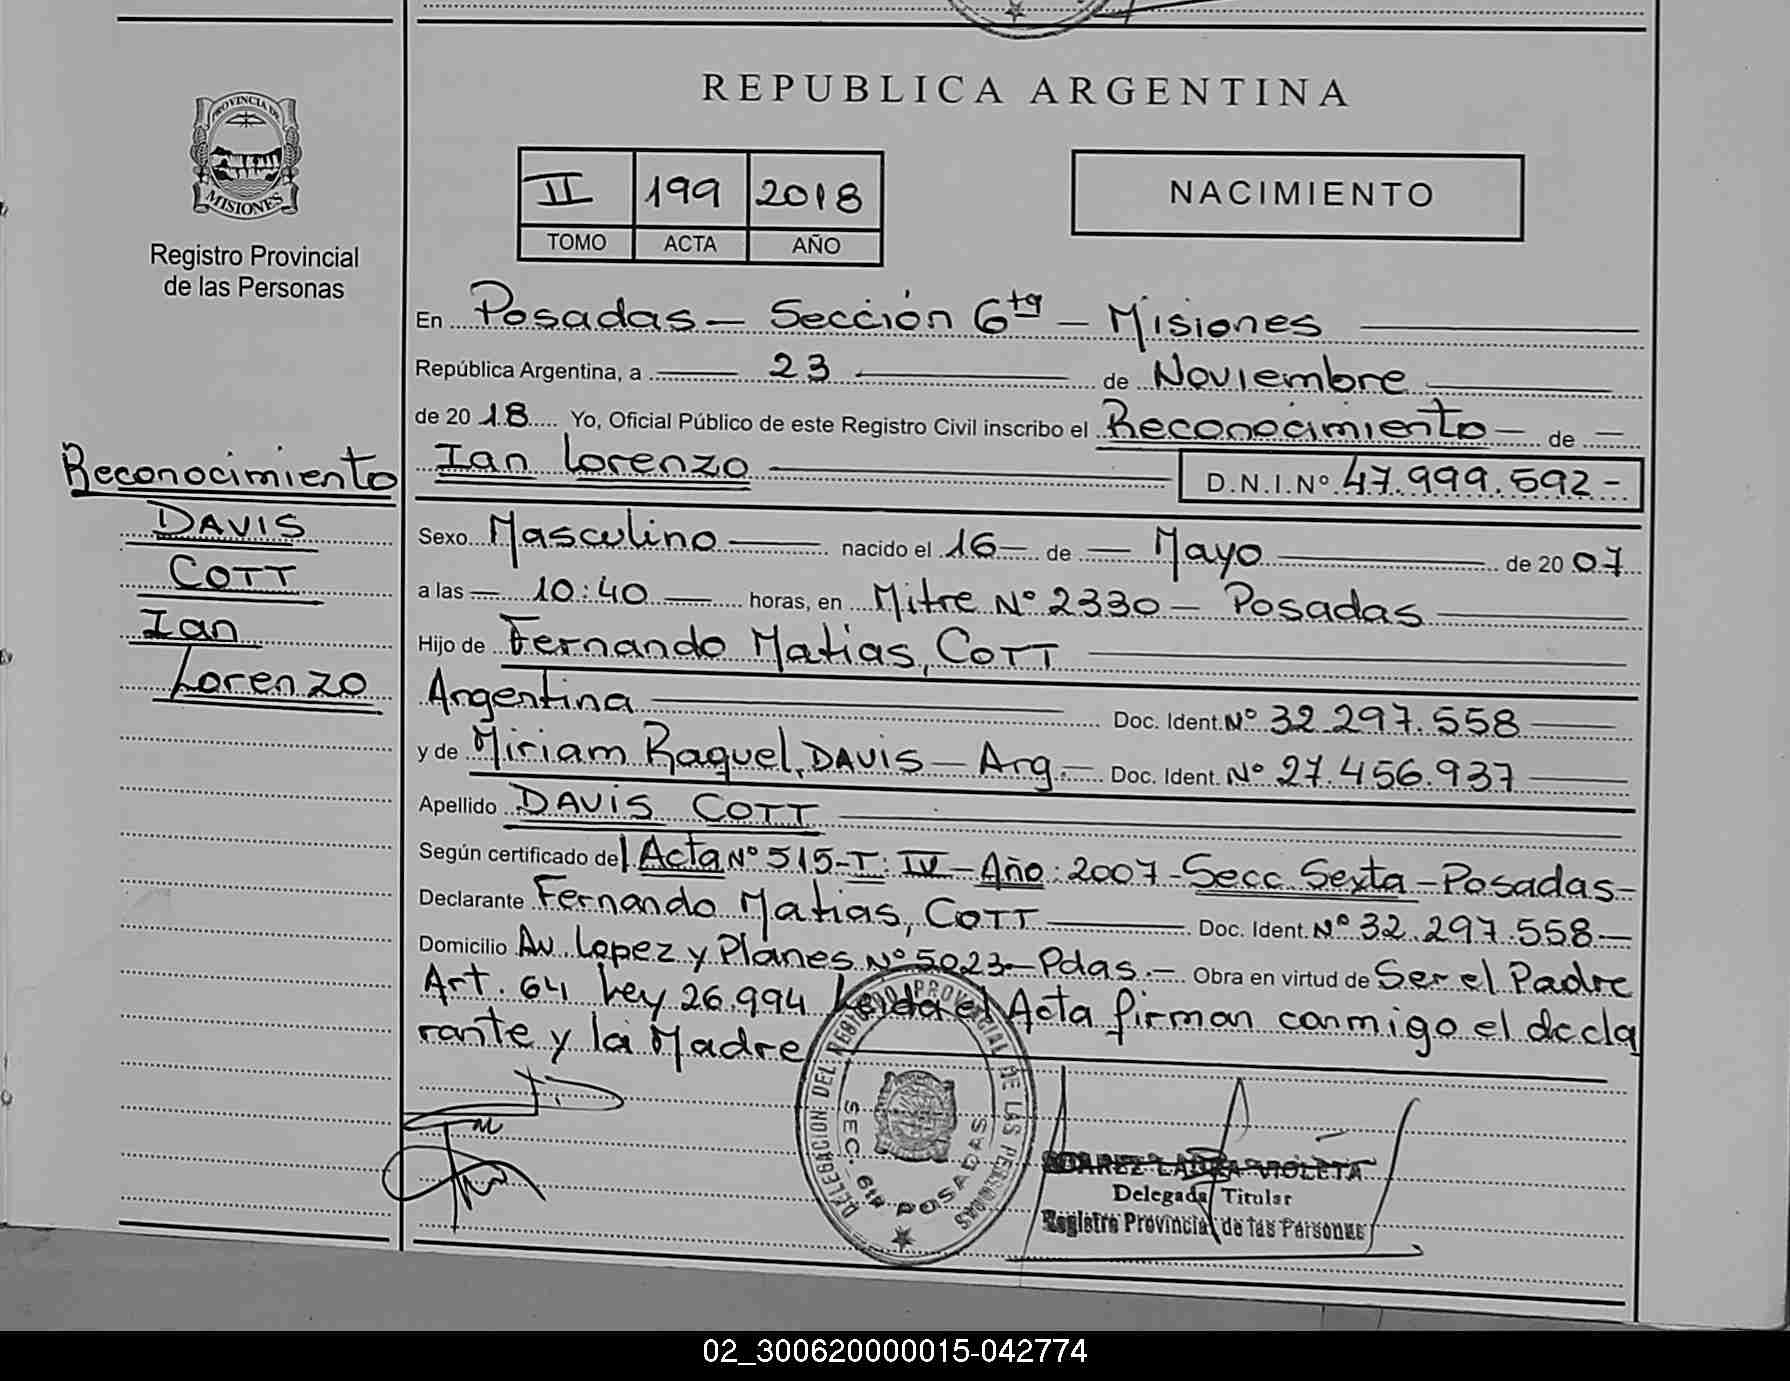 REPUBLICA ARGENTINA
PROVINCIA DE
MISIONES
Registro Provincial
de las Personas
II 199 2018
TOMO ACTA AÑO
NACIMIENTO
En Posadas - Sección 6ta - Misiones
República Argentina, a 23 de Noviembre
de 2018 Yo, Oficial Público de este Registro Civil inscribo el Reconocimiento de
Ian Lorenzo D.N.I.Nº 47.999.592-
Reconocimiento
DAVIS
COTT
Ian
Lorenzo
Sexo Masculino nacido el 16 de Mayo de 2007
a las 10:40 horas, en Mitre Nº 2330 - Posadas
Hijo de Fernando Matias, COTT
Argentina Doc. Ident. Nº 32.297.558
y de Miriam Raquel, DAVIS - Arg.- Doc. Ident. Nº 27.456.937
Apellido DAVIS COTT
Según certificado de l Acta Nº 515-T: IV-Año: 2007-Secc. Sexta-Posadas-
Declarante Fernando Matias, COTT Doc. Ident. Nº 32.297.558-
Domicilio Av. Lopez y Planes Nº 5023-Pdas.- Obra en virtud de Ser el Padre
Art. 64 Ley 26.994 Leida el Acta firman conmigo el decla
rante y la Madre
DELEGACION DEL REGISTRO PROVINCIAL DE LAS PERSONAS
SEC. 6ta POSADAS
SUAREZ LAURA VIOLETA
Delegada Titular
Registro Provincial de las Personas
02_300620000015-042774